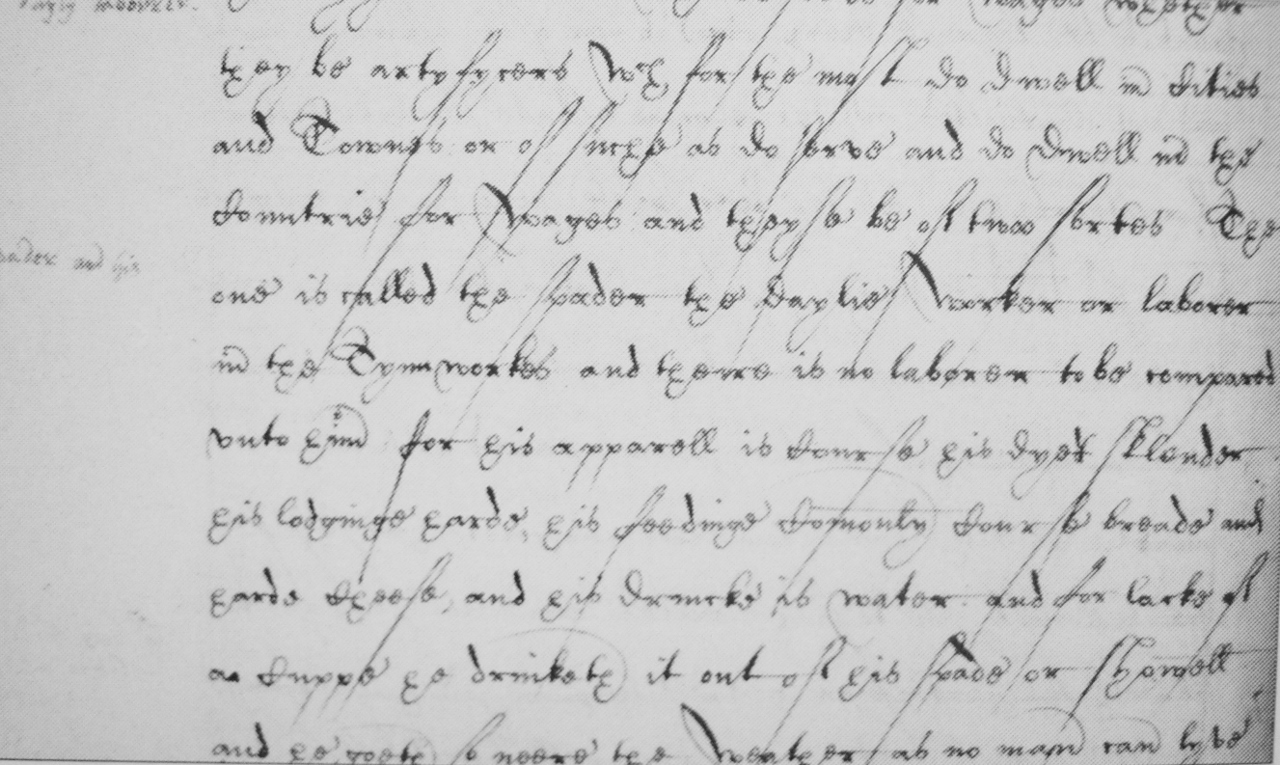 for wages whether
they be artyfycers wch for the most do dwell in Cities
and Townes or of suche as do serve and do dwell in the
Countrie for wages and theyse be of two sortes The
one is called the spader the daylie worker or laborer
spader and his
in the Tynnworkes and theire is no laborer to be compared
vnto hym for his apparell is course his dyet sklender
his lodginge harde, his feedinge comonly course breade and
harde cheese, and his drincke is water. and for lacke of
a cuppe he drinketh it out of his spade or showell
and he goeth so neere the weather as no man can lyve